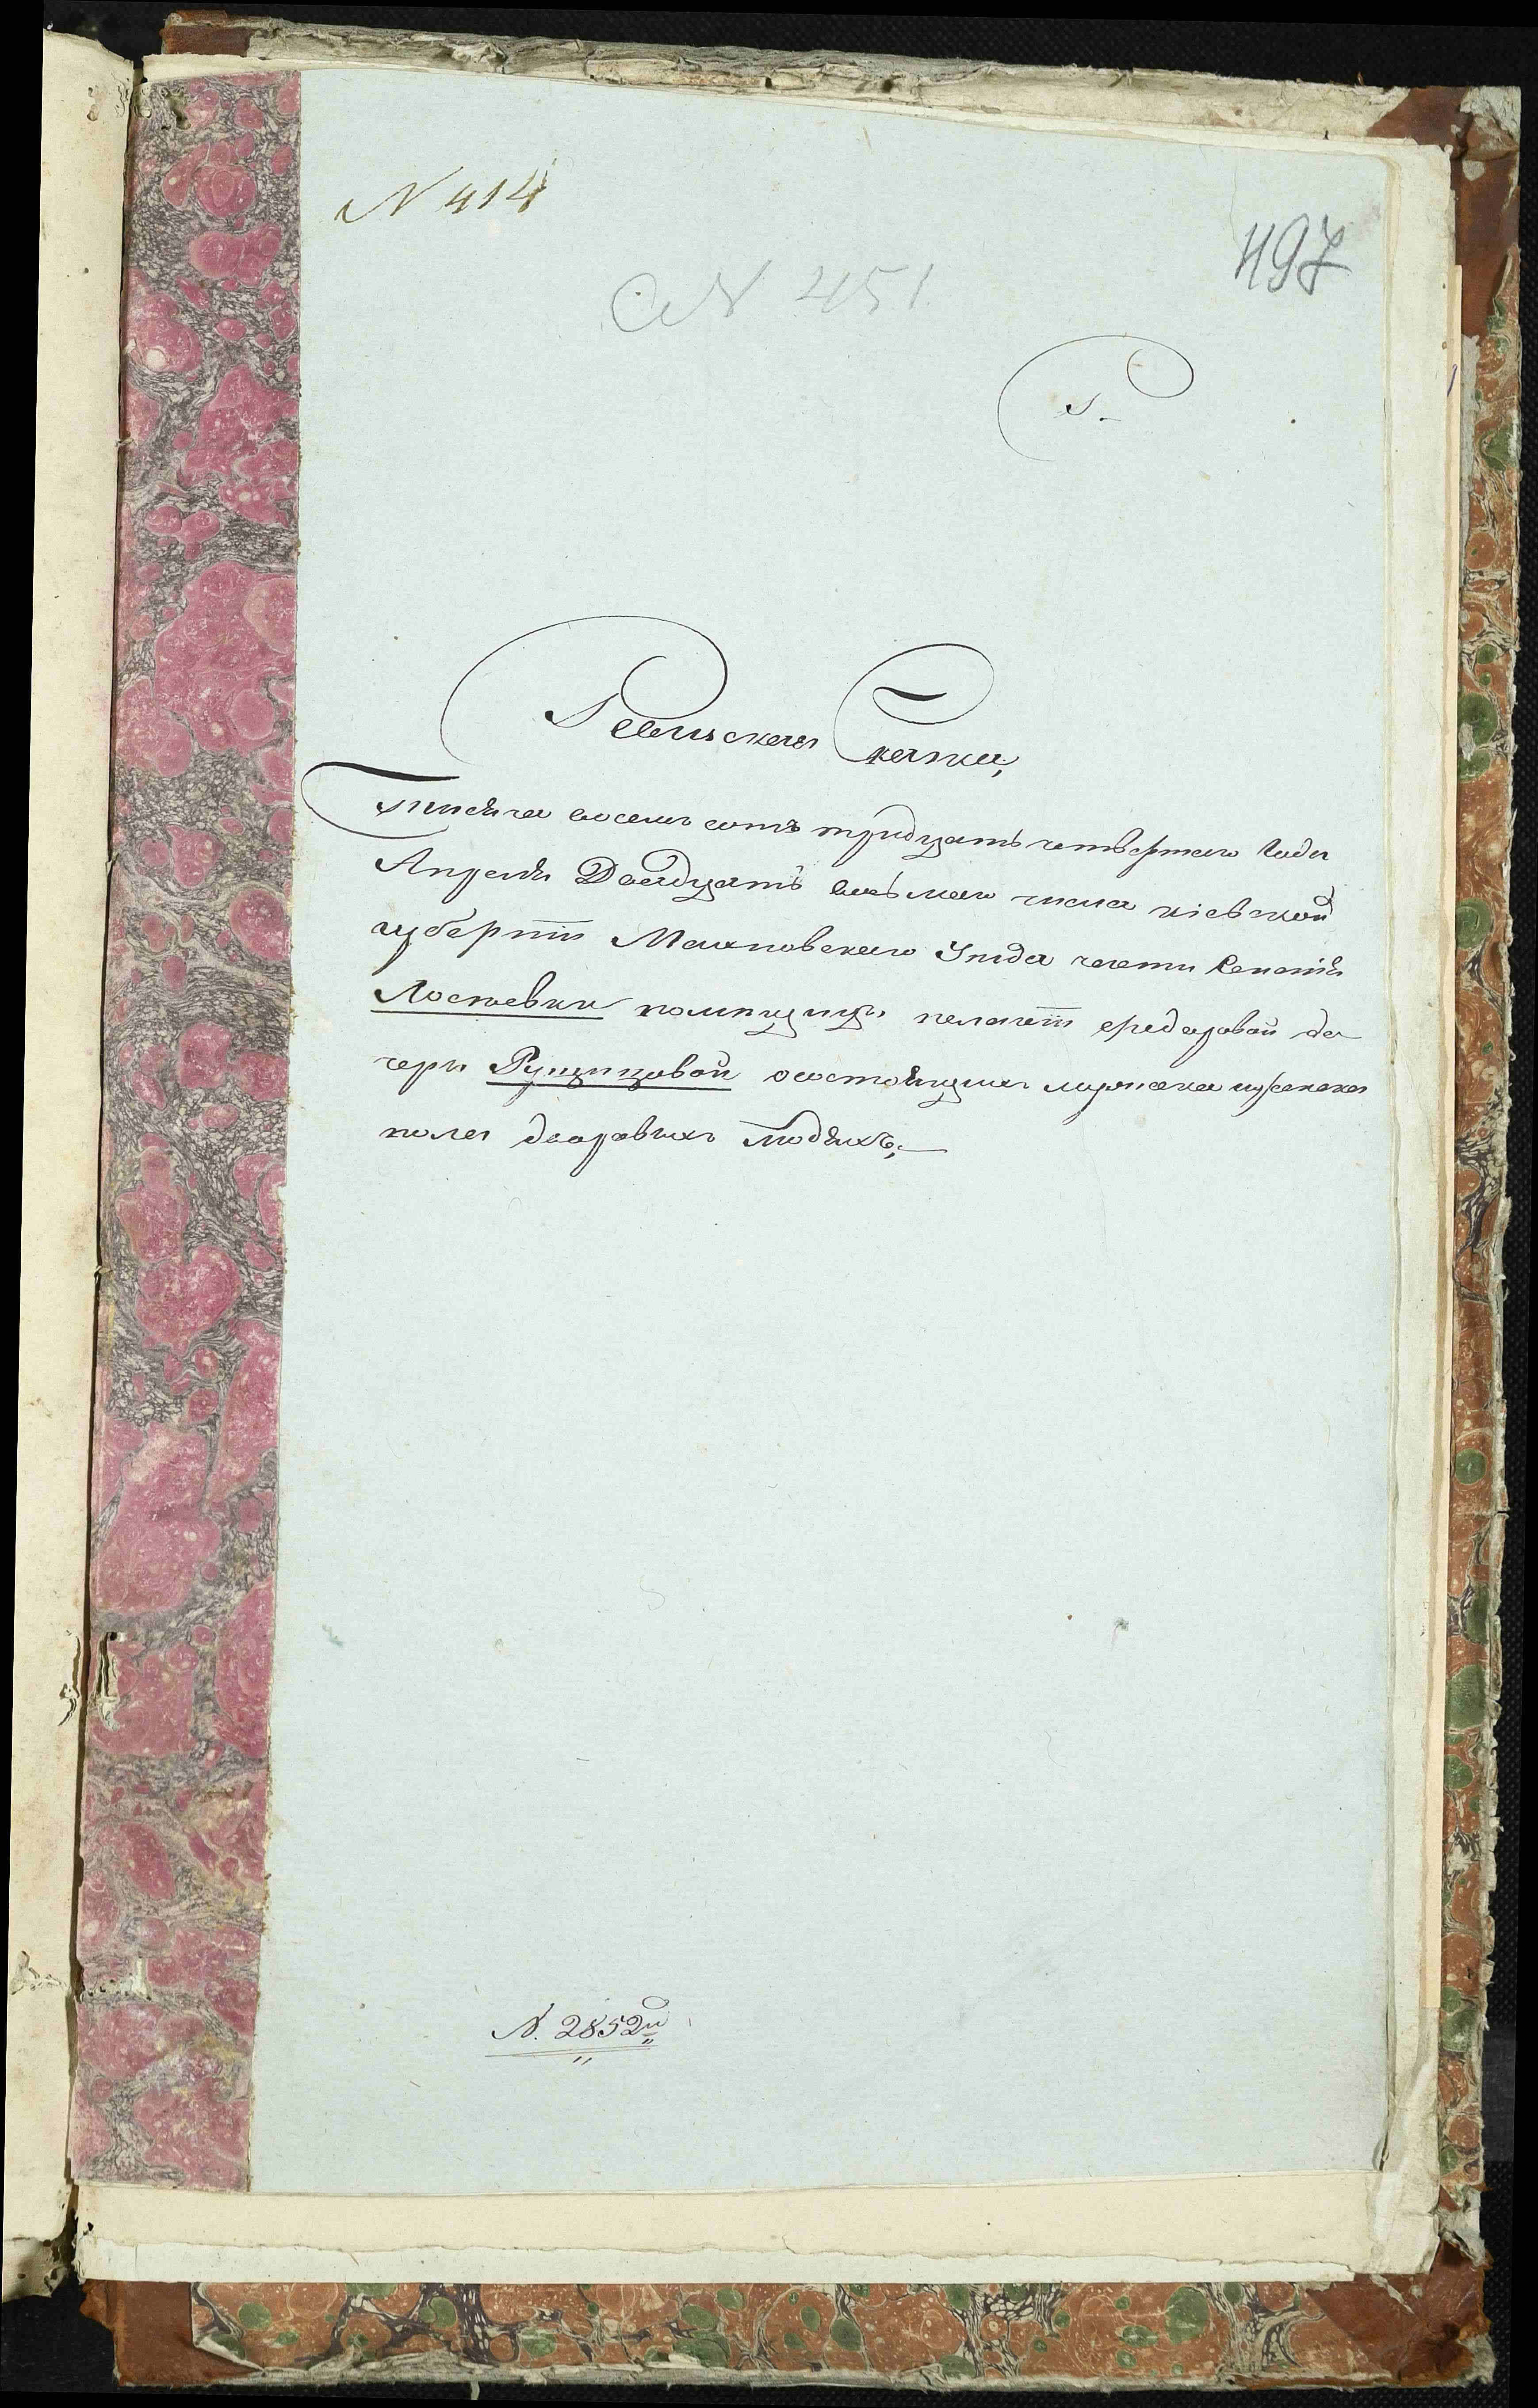 N 414
497
N 451
Ревизская Сказка,
Тысяча восемь сотъ тридцать четвертаго Года
Апреля Двадцать восьмаго числа кіевской
губерніи Махновскаго Уезда части Селенія
Лостевки помещицы пелагіи федоровой до
чери Рущицовой осостоящихъ мужска и женска
пола дворовыхъ людяхъ,
N. 2852й